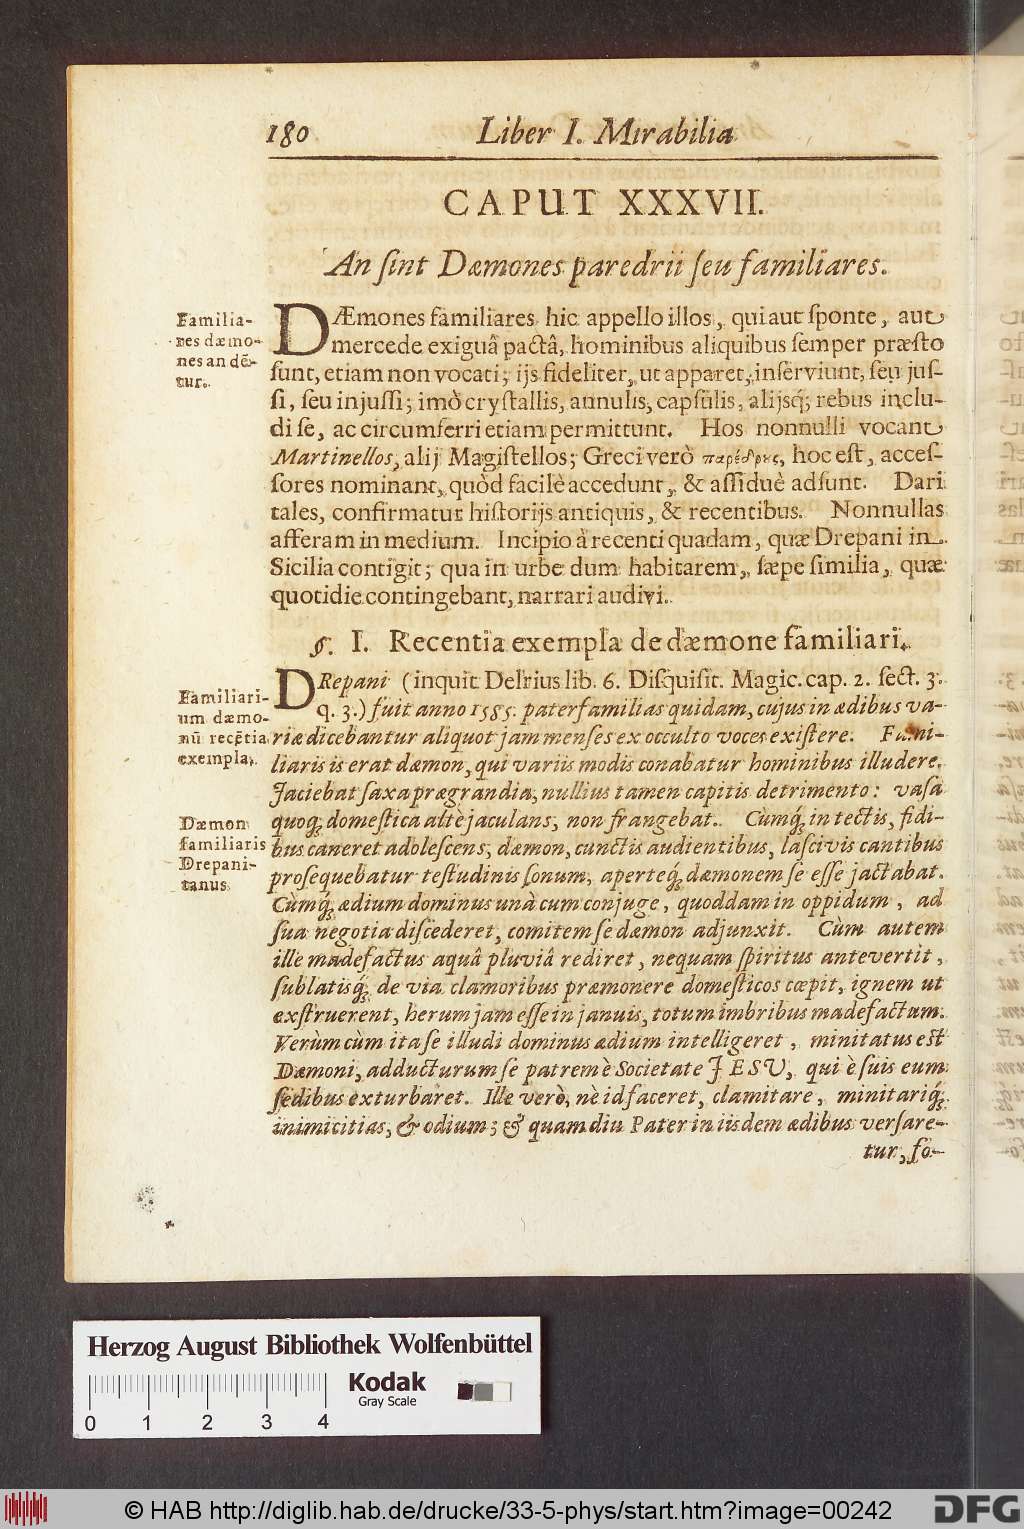 180 Liber I. Mirabilia
CAPUT XXXVII.
An ſint Dæmones paredrii ſeu familiares.
Familia-
res dæmo-
nes an dē-
tur.
DÆmones familiares hic appello illos, qui aut ſponte, aut
mercede exiguâ pactâ, hominibus aliquibus ſemper præſto
ſunt, etiam non vocati; ijs fideliter, ut apparet, inſerviunt, ſeu juſ-
ſi, ſeu injuſſi; imò cryſtallis, annulis, capſulis, alijsq́; rebus inclu-
di ſe, ac circumferri etiam permittunt. Hos nonnulli vocant
Martinellos, alij Magiſtellos; Greci verò παρέδρȣς, hoc eſt, acceſ-
ſores nominant, quòd facilè accedunt, & aſſiduè adſunt. Dari
tales, confirmatur hiſtorijs antiquis, & recentibus. Nonnullas
afferam in medium. Incipio à recenti quadam, quæ Drepani in
Sicilia contigit; qua in urbe dum habitarem, ſæpe ſimilia, quæ
quotidie contingebant, narrari audivi.
§. I. Recentia exempla de dæmone familiari.
Familiari-
um dæmo-
nū recētia
exempla.
DRepani (inquit Delrius lib. 6. Diſquiſit. Magic. cap. 2. ſect. 3.
q. 3.) fuit anno 1585. paterfamilias quidam, cujus in ædibus va-
riæ dicebantur aliquot jam menſes ex occulto voces exiſtere. Fami-
liaris is erat dæmon, qui variis modis conabatur hominibus illudere.
Jaciebat ſaxa prægrandia, nullius tamen capitis detrimento: vaſa
Dæmon
familiaris
Drepani-
tanus.
quoq; domeſtica altè jaculans, non frangebat. Cùmq́; in tectis, fidi-
bus caneret adoleſcens; dæmon, cunctis audientibus, laſcivis cantibus
proſequebatur teſtudinis ſonum, aperteq́; dæmonem ſe eſſe jactabat.
Cùmq́; ædium dominus unà cum conjuge, quoddam in oppidum, ad
ſua negotia diſcederet, comitem ſe dæmon adjunxit. Cùm autem
ille madefactus aquâ pluviâ rediret, nequam ſpiritus antevertit,
ſublatisq́; de via clamoribus præmonere domeſticos cœpit, ignem ut
exſtruerent, herum jam eſſe in januis, totum imbribus madefactum.
Verùm cùm ita ſe illudi dominus ædium intelligeret, minitatus eſt
Dæmoni, adducturum ſe patrem è Societate JESU, qui è ſuis eum
ſedibus exturbaret. Ille verò, nè id faceret, clamitare, minitariq́;
inimicitias, & odium; & quam diu Pater in iisdem ædibus verſare-
tur, ſo-
Herzog August Bibliothek Wolfenbüttel
Kodak
Gray Scale
0 1 2 3 4
© HAB http://diglib.hab.de/drucke/33-5-phys/start.htm?image=00242
DFG